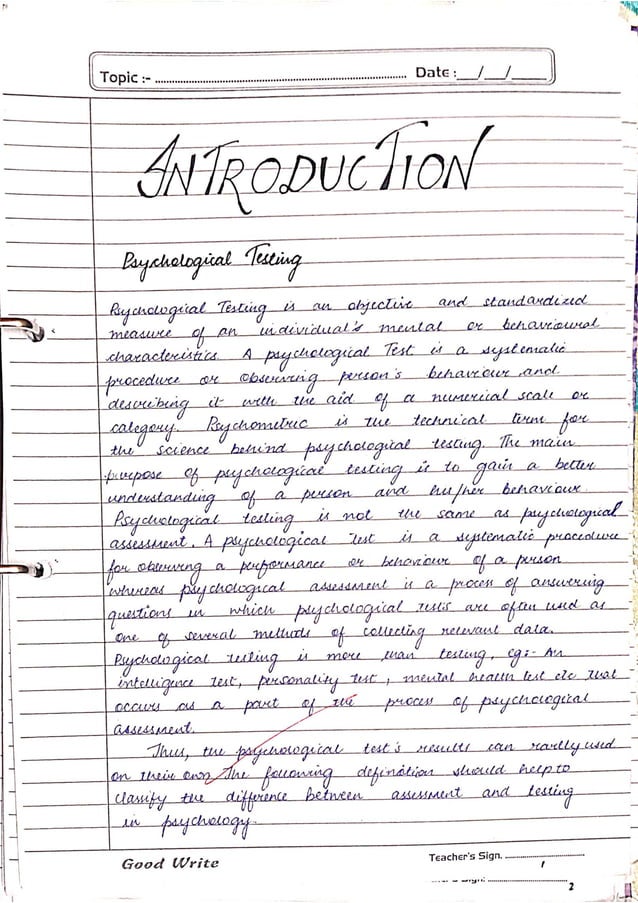 Topic :- ........ Date :__/__/____
INTRODUCTION
Psychological Testing
Psychological Testing is an objective and standardized
measure of an individual's mental or behavioural
characteristics. A psychological Test is a systematic
procedure or observing person's behaviour and
describing it with the aid of a numerical scale or
category. Psychometric is the technical term for
the science behind psychological testing. The main
purpose of psychological testing is to gain a better
understanding of a person and his/her behaviour.
Psychological testing is not the same as psychological
assessment. A psychological Test is a systematic procedure
for observing a performance or behaviour of a person
whereas psychological assessment is a process of answering
questions in which psychological tests are often used as
one of several methods of collecting relevant data.
Psychological testing is more than testing, eg:- An
intelligence test, personality test, mental health test etc that
occurs as a part of the process of psychological
assessment.
Thus, the psychological test's results can rarely used
on their own. The following defination should help to
classify the difference between assessment and testing
in psychology.
Good Write
Teacher's Sign. ........
1
Sign. ........
2